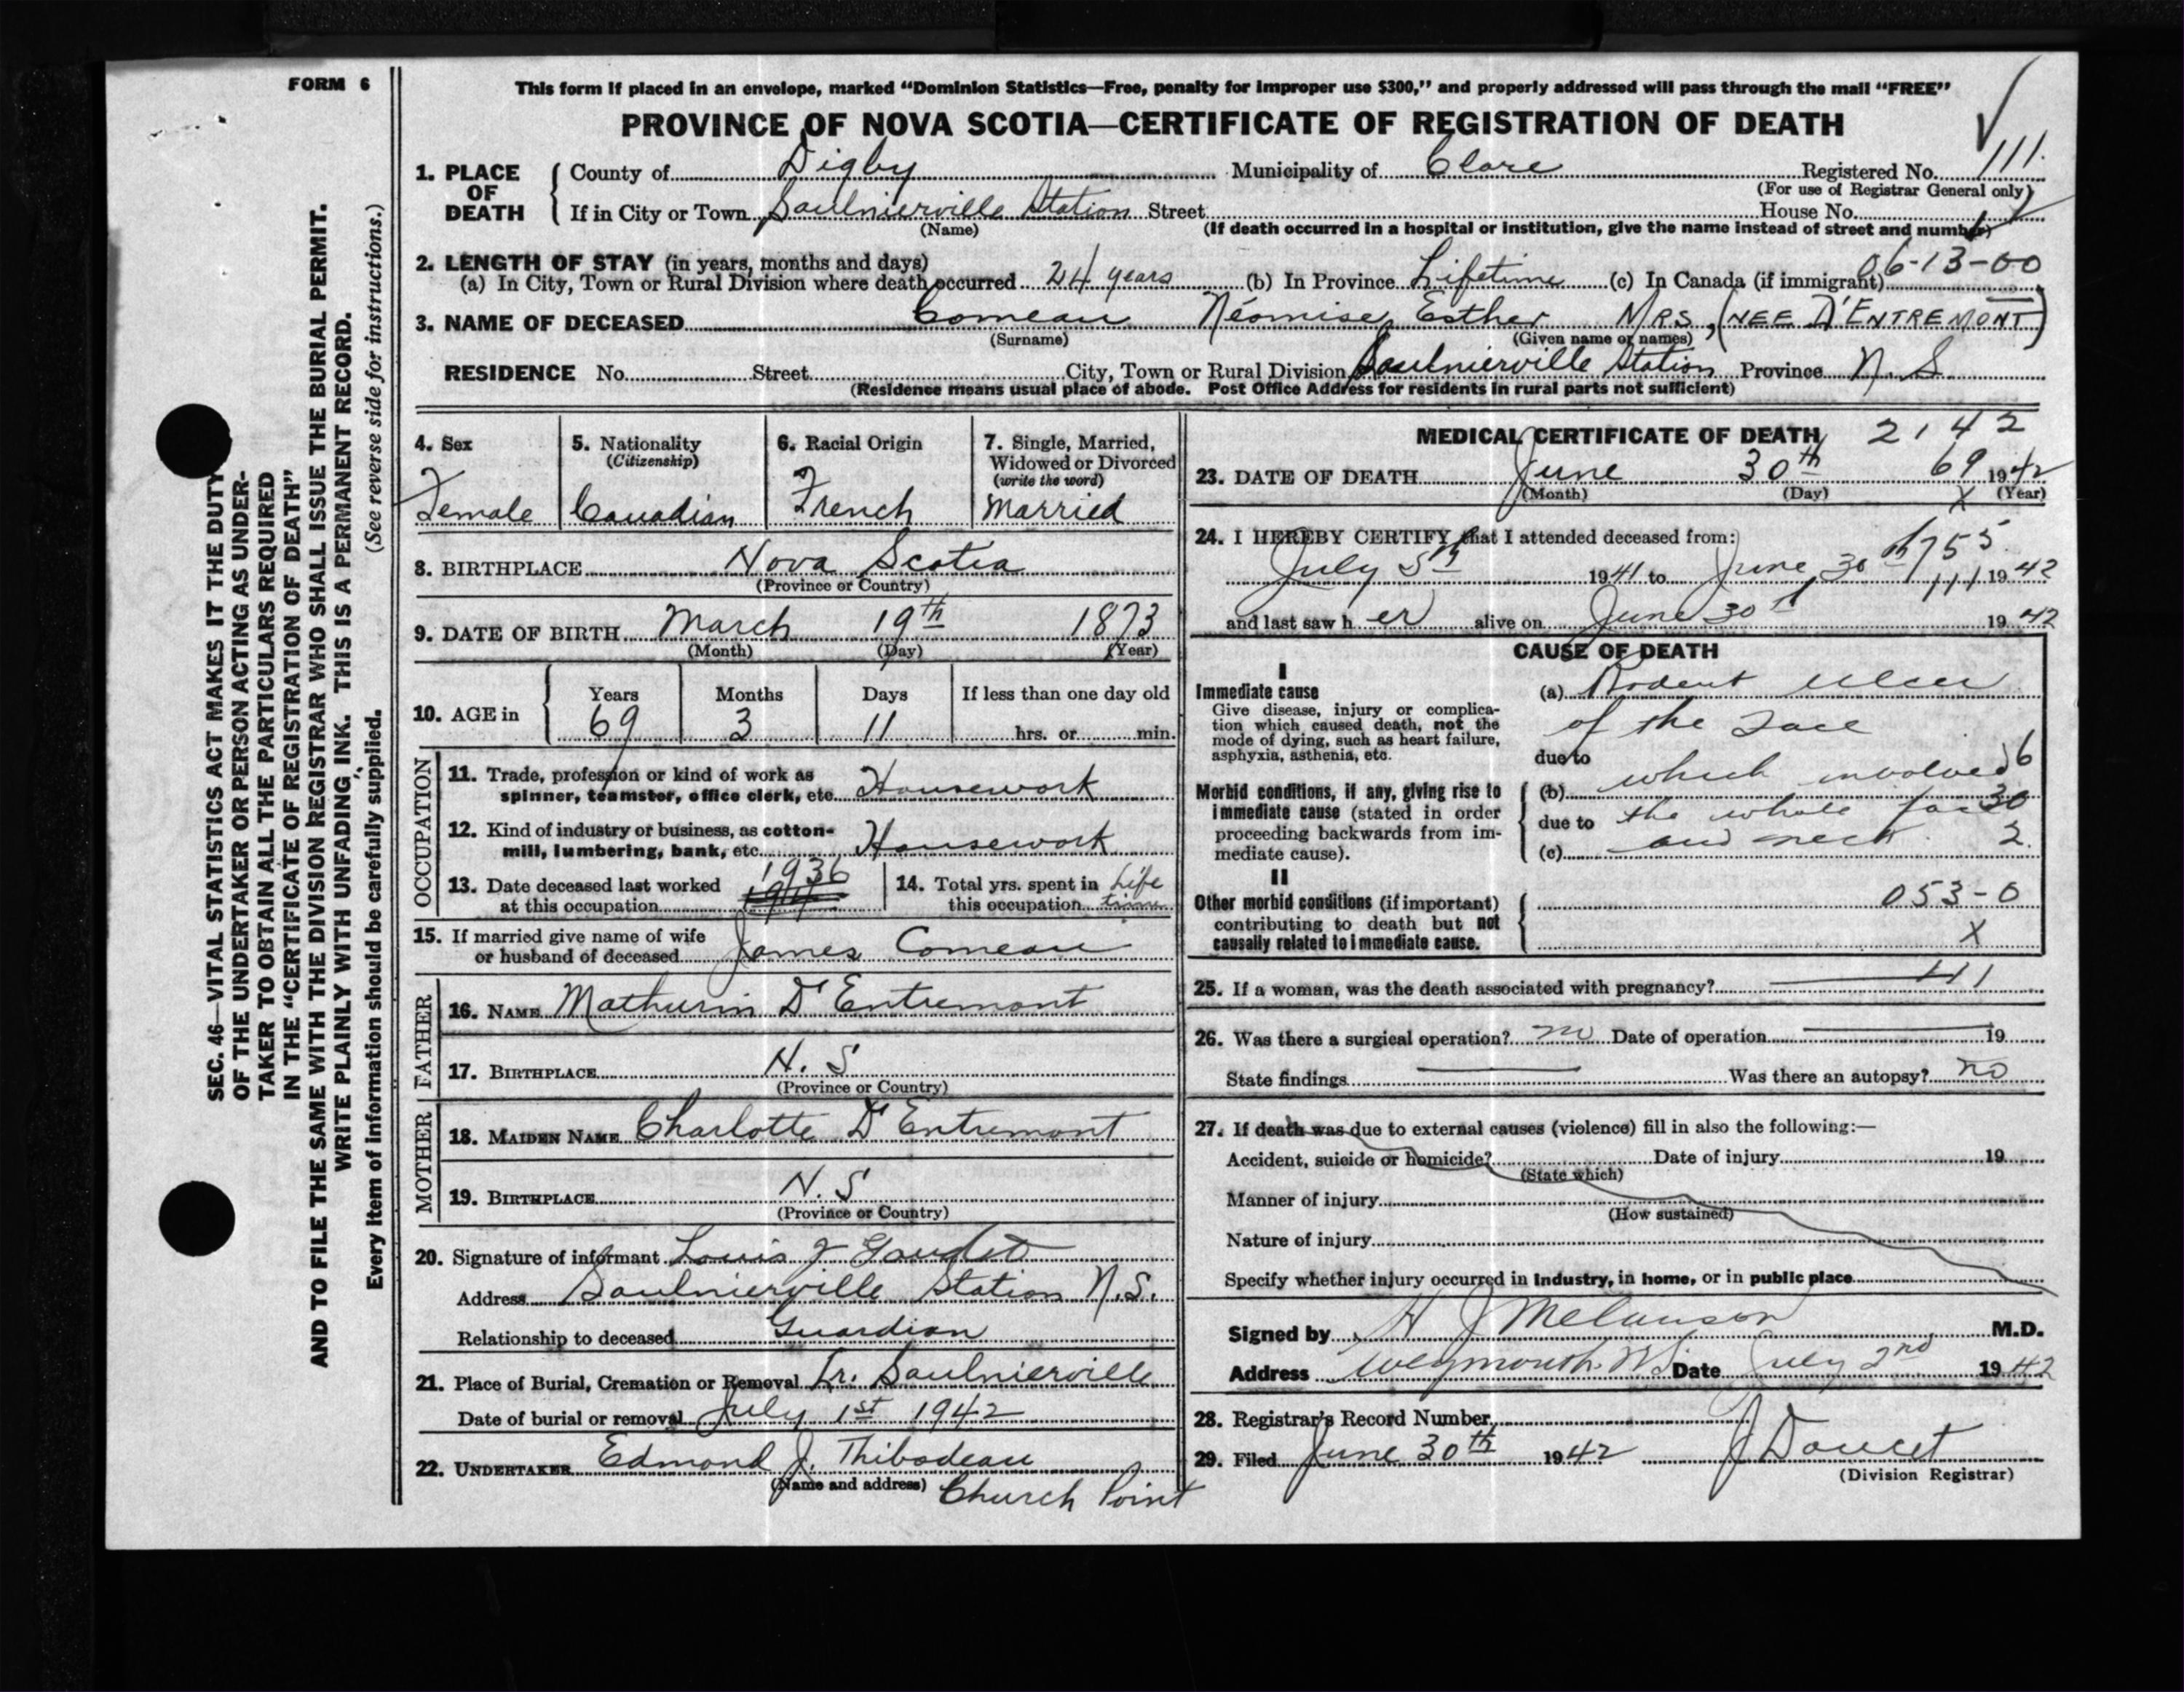 FORM 6
This form if placed in an envelope, marked “Dominion Statistics—Free, penalty for improper use $300,” and properly addressed will pass through the mail “FREE”
PROVINCE OF NOVA SCOTIA—CERTIFICATE OF REGISTRATION OF DEATH
1. PLACE OF DEATH
County of Digby Municipality of Clare Registered No. 111.
(For use of Registrar General only)
If in City or Town Saulnierville Station Street House No.
(Name) (If death occurred in a hospital or institution, give the name instead of street and number)
2. LENGTH OF STAY (in years, months and days) 06-13-00
(a) In City, Town or Rural Division where death occurred 24 years (b) In Province Lifetime (c) In Canada (if immigrant)
3. NAME OF DECEASED Comeau Néomise Esther MRS, (NEE D'ENTREMONT)
(Surname) (Given name or names)
RESIDENCE No. Street City, Town or Rural Division Saulnierville Station Province N. S.
(Residence means usual place of abode. Post Office Address for residents in rural parts not sufficient)
4. Sex
Female
5. Nationality
(Citizenship)
Canadian
6. Racial Origin
French
7. Single, Married,
Widowed or Divorced
(write the word)
Married
8. BIRTHPLACE Nova Scotia
(Province or Country)
9. DATE OF BIRTH March 19th 1873
(Month) (Day) (Year)
10. AGE in
Years Months Days If less than one day old
69 3 11 hrs. or min.
OCCUPATION
11. Trade, profession or kind of work as
spinner, teamster, office clerk, etc. Housework
12. Kind of industry or business, as cotton-
mill, lumbering, bank, etc. Housework
13. Date deceased last worked 1936
at this occupation
14. Total yrs. spent in Life
this occupation time
15. If married give name of wife
or husband of deceased James Comeau
FATHER
16. NAME Mathurin D'Entremont
17. BIRTHPLACE N. S
(Province or Country)
MOTHER
18. MAIDEN NAME Charlotte D'Entremont
19. BIRTHPLACE N. S
(Province or Country)
20. Signature of informant Louis J Gaudet
Address Saulnierville Station N.S.
Relationship to deceased Guardian
21. Place of Burial, Cremation or Removal Lr. Saulnierville
Date of burial or removal July 1st 1942
22. UNDERTAKER Edmond J. Thibodeau
(Name and address) Church Point
MEDICAL CERTIFICATE OF DEATH 2142
23. DATE OF DEATH June 30th 69 1942
(Month) (Day) X (Year)
24. I HEREBY CERTIFY that I attended deceased from:
July 5th 1941 to June 30th 1942
755
111
and last saw h er alive on June 30th 1942
CAUSE OF DEATH
I
Immediate cause
Give disease, injury or complica-
tion which caused death, not the
mode of dying, such as heart failure,
asphyxia, asthenia, etc.
(a) Rodent ulcer
of the face
due to
Morbid conditions, if any, giving rise to
immediate cause (stated in order
proceeding backwards from im-
mediate cause).
(b) which involved 6
due to the whole face 30
(c) and neck. 2.
II
Other morbid conditions (if important)
contributing to death but not
causally related to immediate cause.
053-0
X
25. If a woman, was the death associated with pregnancy?
26. Was there a surgical operation? no Date of operation 19
State findings Was there an autopsy? no
27. If death was due to external causes (violence) fill in also the following:—
Accident, suicide or homicide? Date of injury 19
(State which)
Manner of injury
(How sustained)
Nature of injury
Specify whether injury occurred in industry, in home, or in public place
Signed by H J Melanson M.D.
Address Weymouth NS Date July 2nd 1942
28. Registrar's Record Number
29. Filed June 30th 1942 J Doucet
(Division Registrar)
SEC. 46—VITAL STATISTICS ACT MAKES IT THE DUTY
OF THE UNDERTAKER OR PERSON ACTING AS UNDER-
TAKER TO OBTAIN ALL THE PARTICULARS REQUIRED
IN THE “CERTIFICATE OF REGISTRATION OF DEATH”
AND TO FILE THE SAME WITH THE DIVISION REGISTRAR WHO SHALL ISSUE THE BURIAL PERMIT.
WRITE PLAINLY WITH UNFADING INK. THIS IS A PERMANENT RECORD.
Every item of information should be carefully supplied. (See reverse side for instructions.)